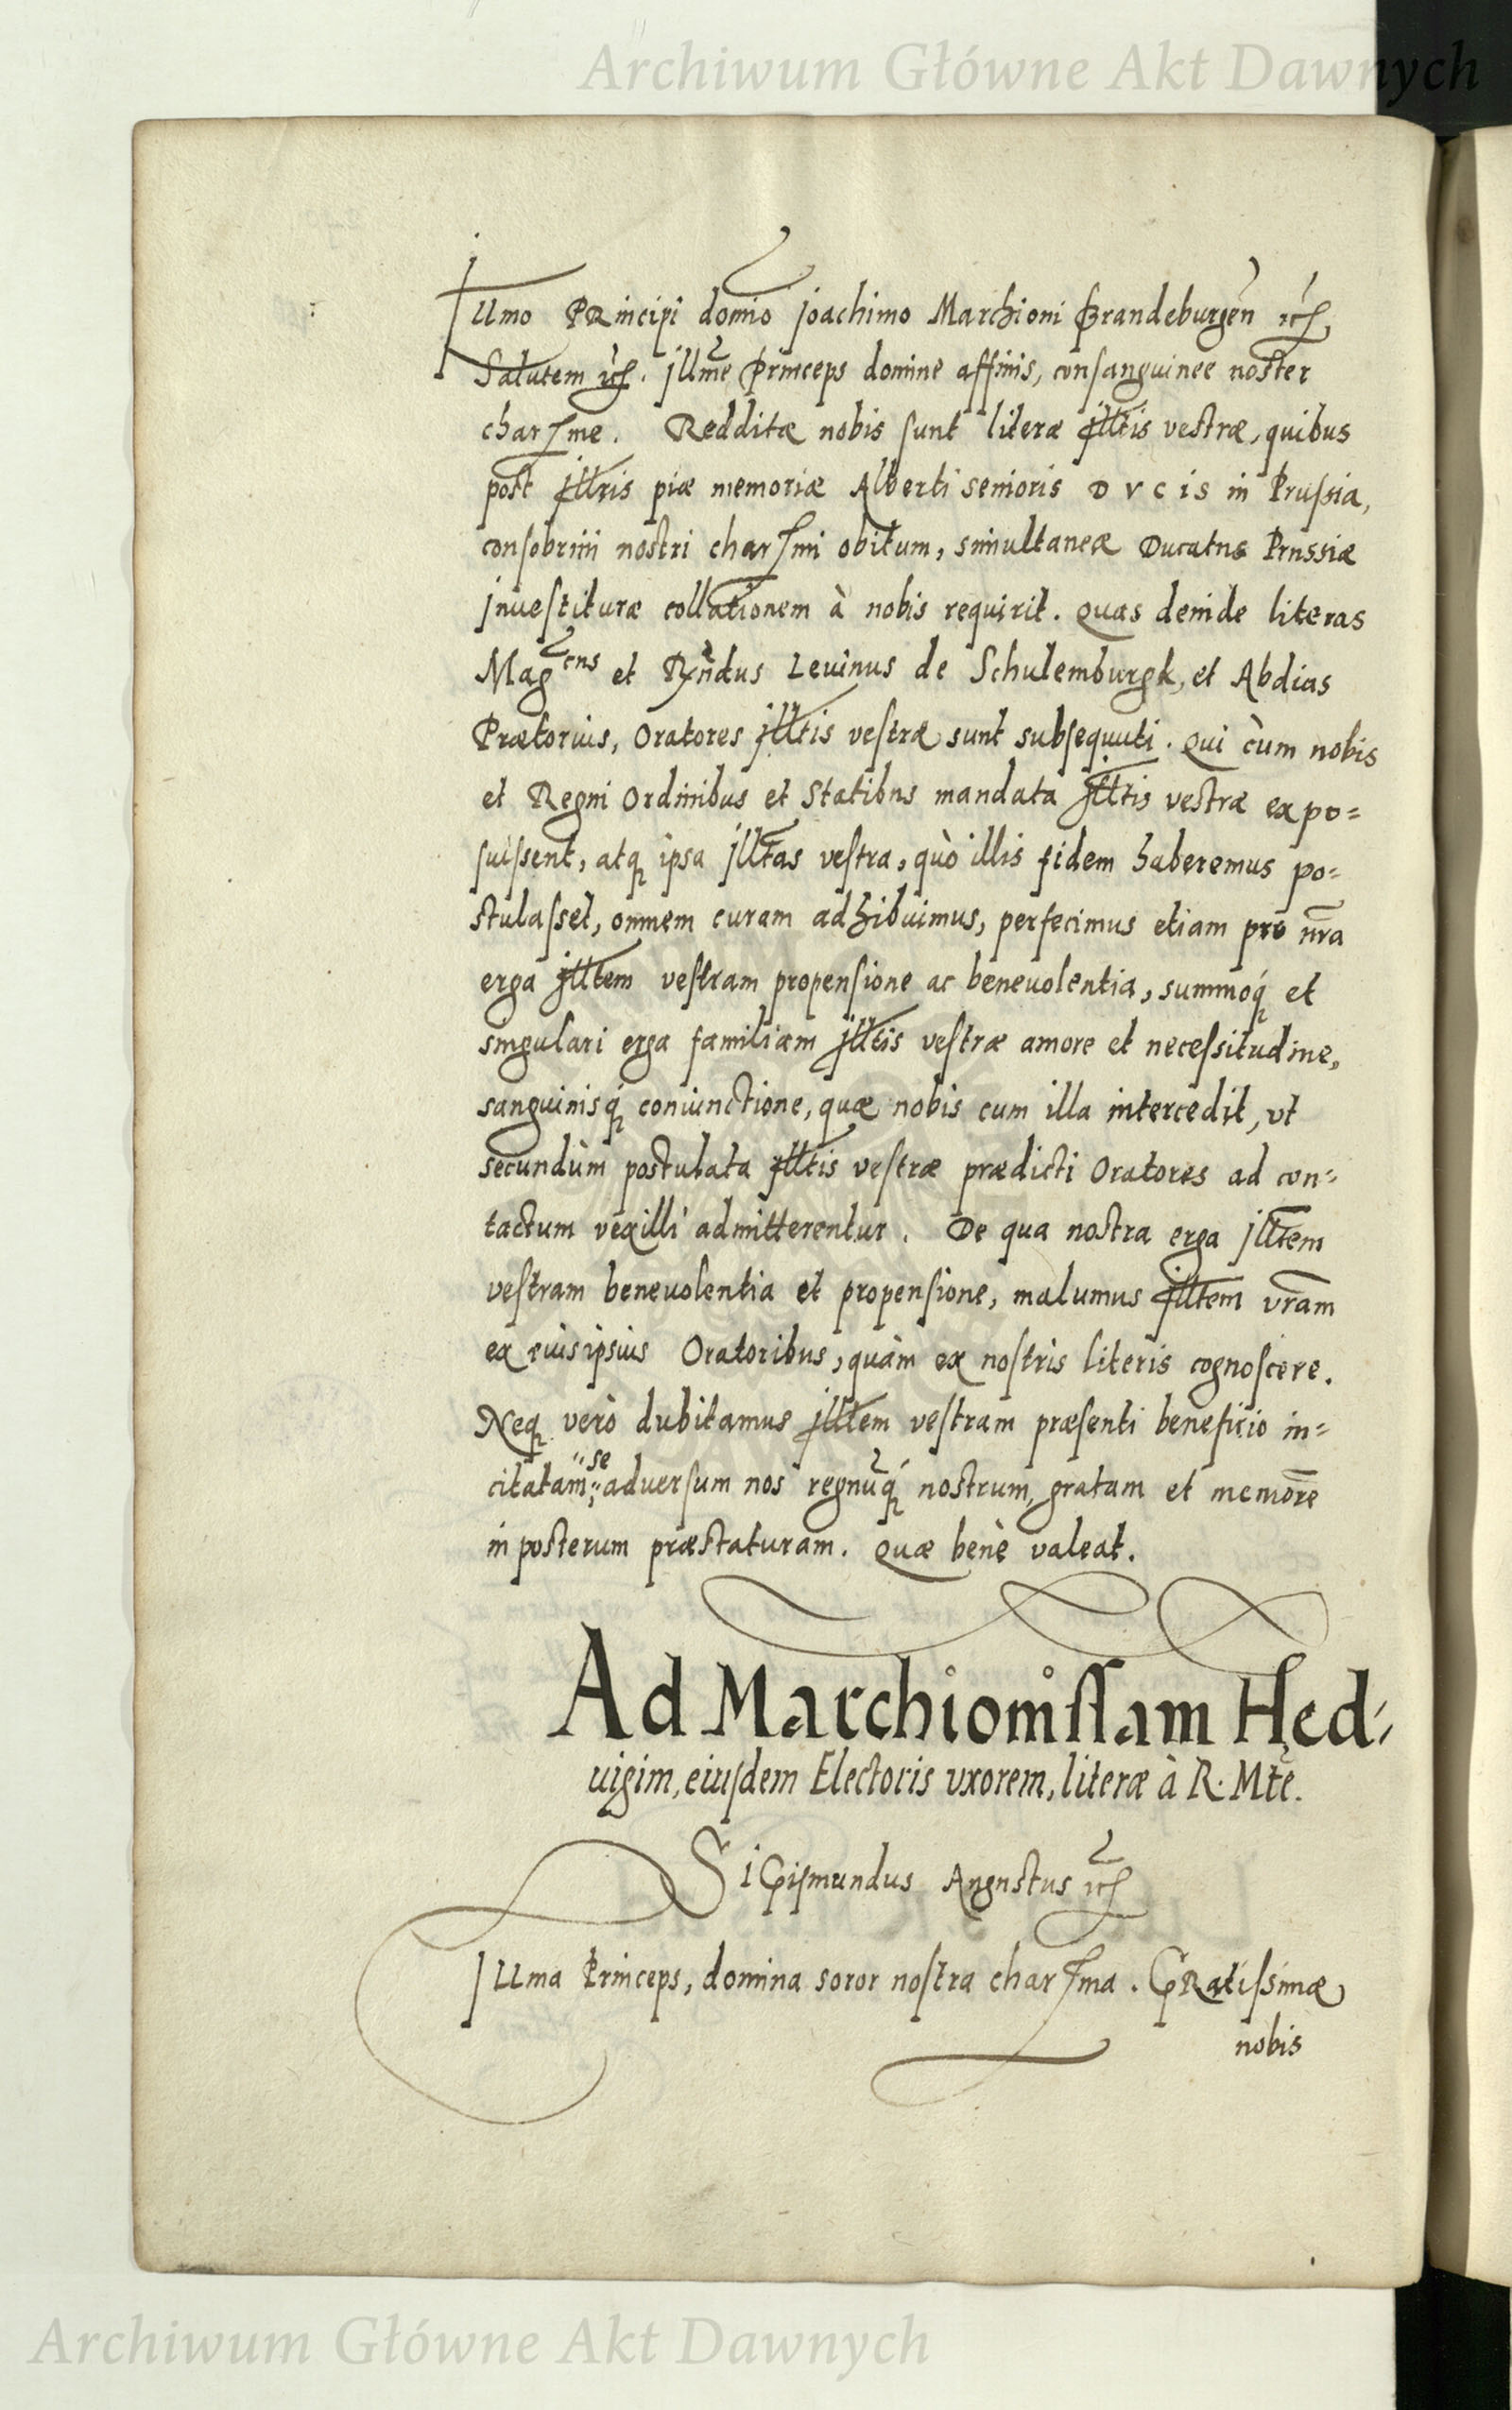 Archiwum Główne Akt Dawnych
Illmo PRincipi domio Joachimo Marchioni Brandeburgen̄ etc.
Salutem etc. Illme Princeps domine affinis, consanguinee noster
charſme. Redditæ nobis sunt literæ Illtis vestræ, quibus
post Illris piæ memoriæ Alberti senioris DVCIS in Prussia,
consobrini nostri charſmi obitum, simultaneæ Ducatus Prussiæ
inuestituræ collationem à nobis requirit. Quas deinde literas
Mag^cus et Rn̄dus Leuinus de Schulemburgk, et Abdias
Prætorius, Oratores Illtis vestræ sunt subsequuti. Qui cùm nobis
et Regni Ordinibus et Statibus mandata Illtis vestræ expo=
suissent, atq ipsa Illtas vestra, quò illis fidem haberemus po=
stulasset, omnem curam adhibuimus, perfecimus etiam pro nr̄a
erga Illtem vestram propensione ac beneuolentia, summoq́ et
singulari erga familiam Illtis vestræ amore et necessitudine,
sanguinisq́ coniunctione, quæ nobis cum illa intercedit, vt
secundùm postulata Illtis vestræ prædicti Oratores ad con=
tactum vexilli admitterentur. De qua nostra erga Illtem
vestram beneuolentia et propensione, malumus Illtem vr̄am
ex eius ipsius Oratoribus, quàm ex nostris literis cognoscere.
Neq verò dubitamus Illtem vestram præsenti beneficio in=
citatam se aduersum nos regnūq́ nostrum, gratam et memorē
in posterum præstaturam. Quæ benè valeat.
Ad Marchionissam Hed=
uigim, eiusdem Electoris vxorem, literæ à R. Mte.
SiGismundus Augustus etc.
Illma Princeps, domina soror nostra charſma. GRatissimæ
nobis
Archiwum Główne Akt Dawnych